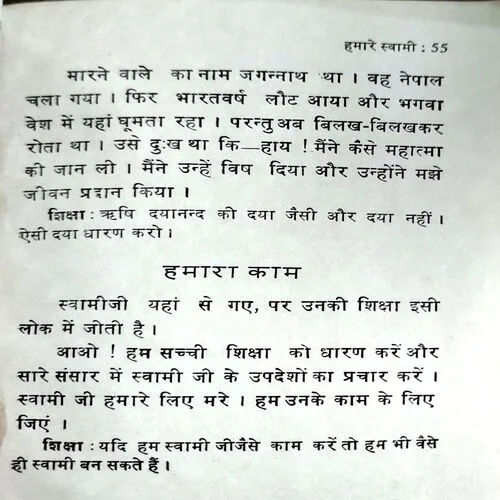 हमारे स्वामी : 55
मारने वाले का नाम जगन्नाथ था । वह नेपाल
चला गया । फिर भारतवर्ष लौट आया और भगवा
वेश में यहां घूमता रहा । परन्तु अब बिलख-बिलखकर
रोता था । उसे दुःख था कि—हाय ! मैंने कैसे महात्मा
की जान ली । मैंने उन्हें विष दिया और उन्होंने मझे
जीवन प्रदान किया ।
शिक्षा : ऋषि दयानन्द की दया जैसी और दया नहीं ।
ऐसी दया धारण करो ।
हमारा काम
स्वामीजी यहां से गए, पर उनकी शिक्षा इसी
लोक में जीती है ।
आओ ! हम सच्ची शिक्षा को धारण करें और
सारे संसार में स्वामी जी के उपदेशों का प्रचार करें ।
स्वामी जी हमारे लिए मरे । हम उनके काम के लिए
जिएं ।
शिक्षा : यदि हम स्वामी जीजैसे काम करें तो हम भी वैसे
ही स्वामी बन सकते हैं ।